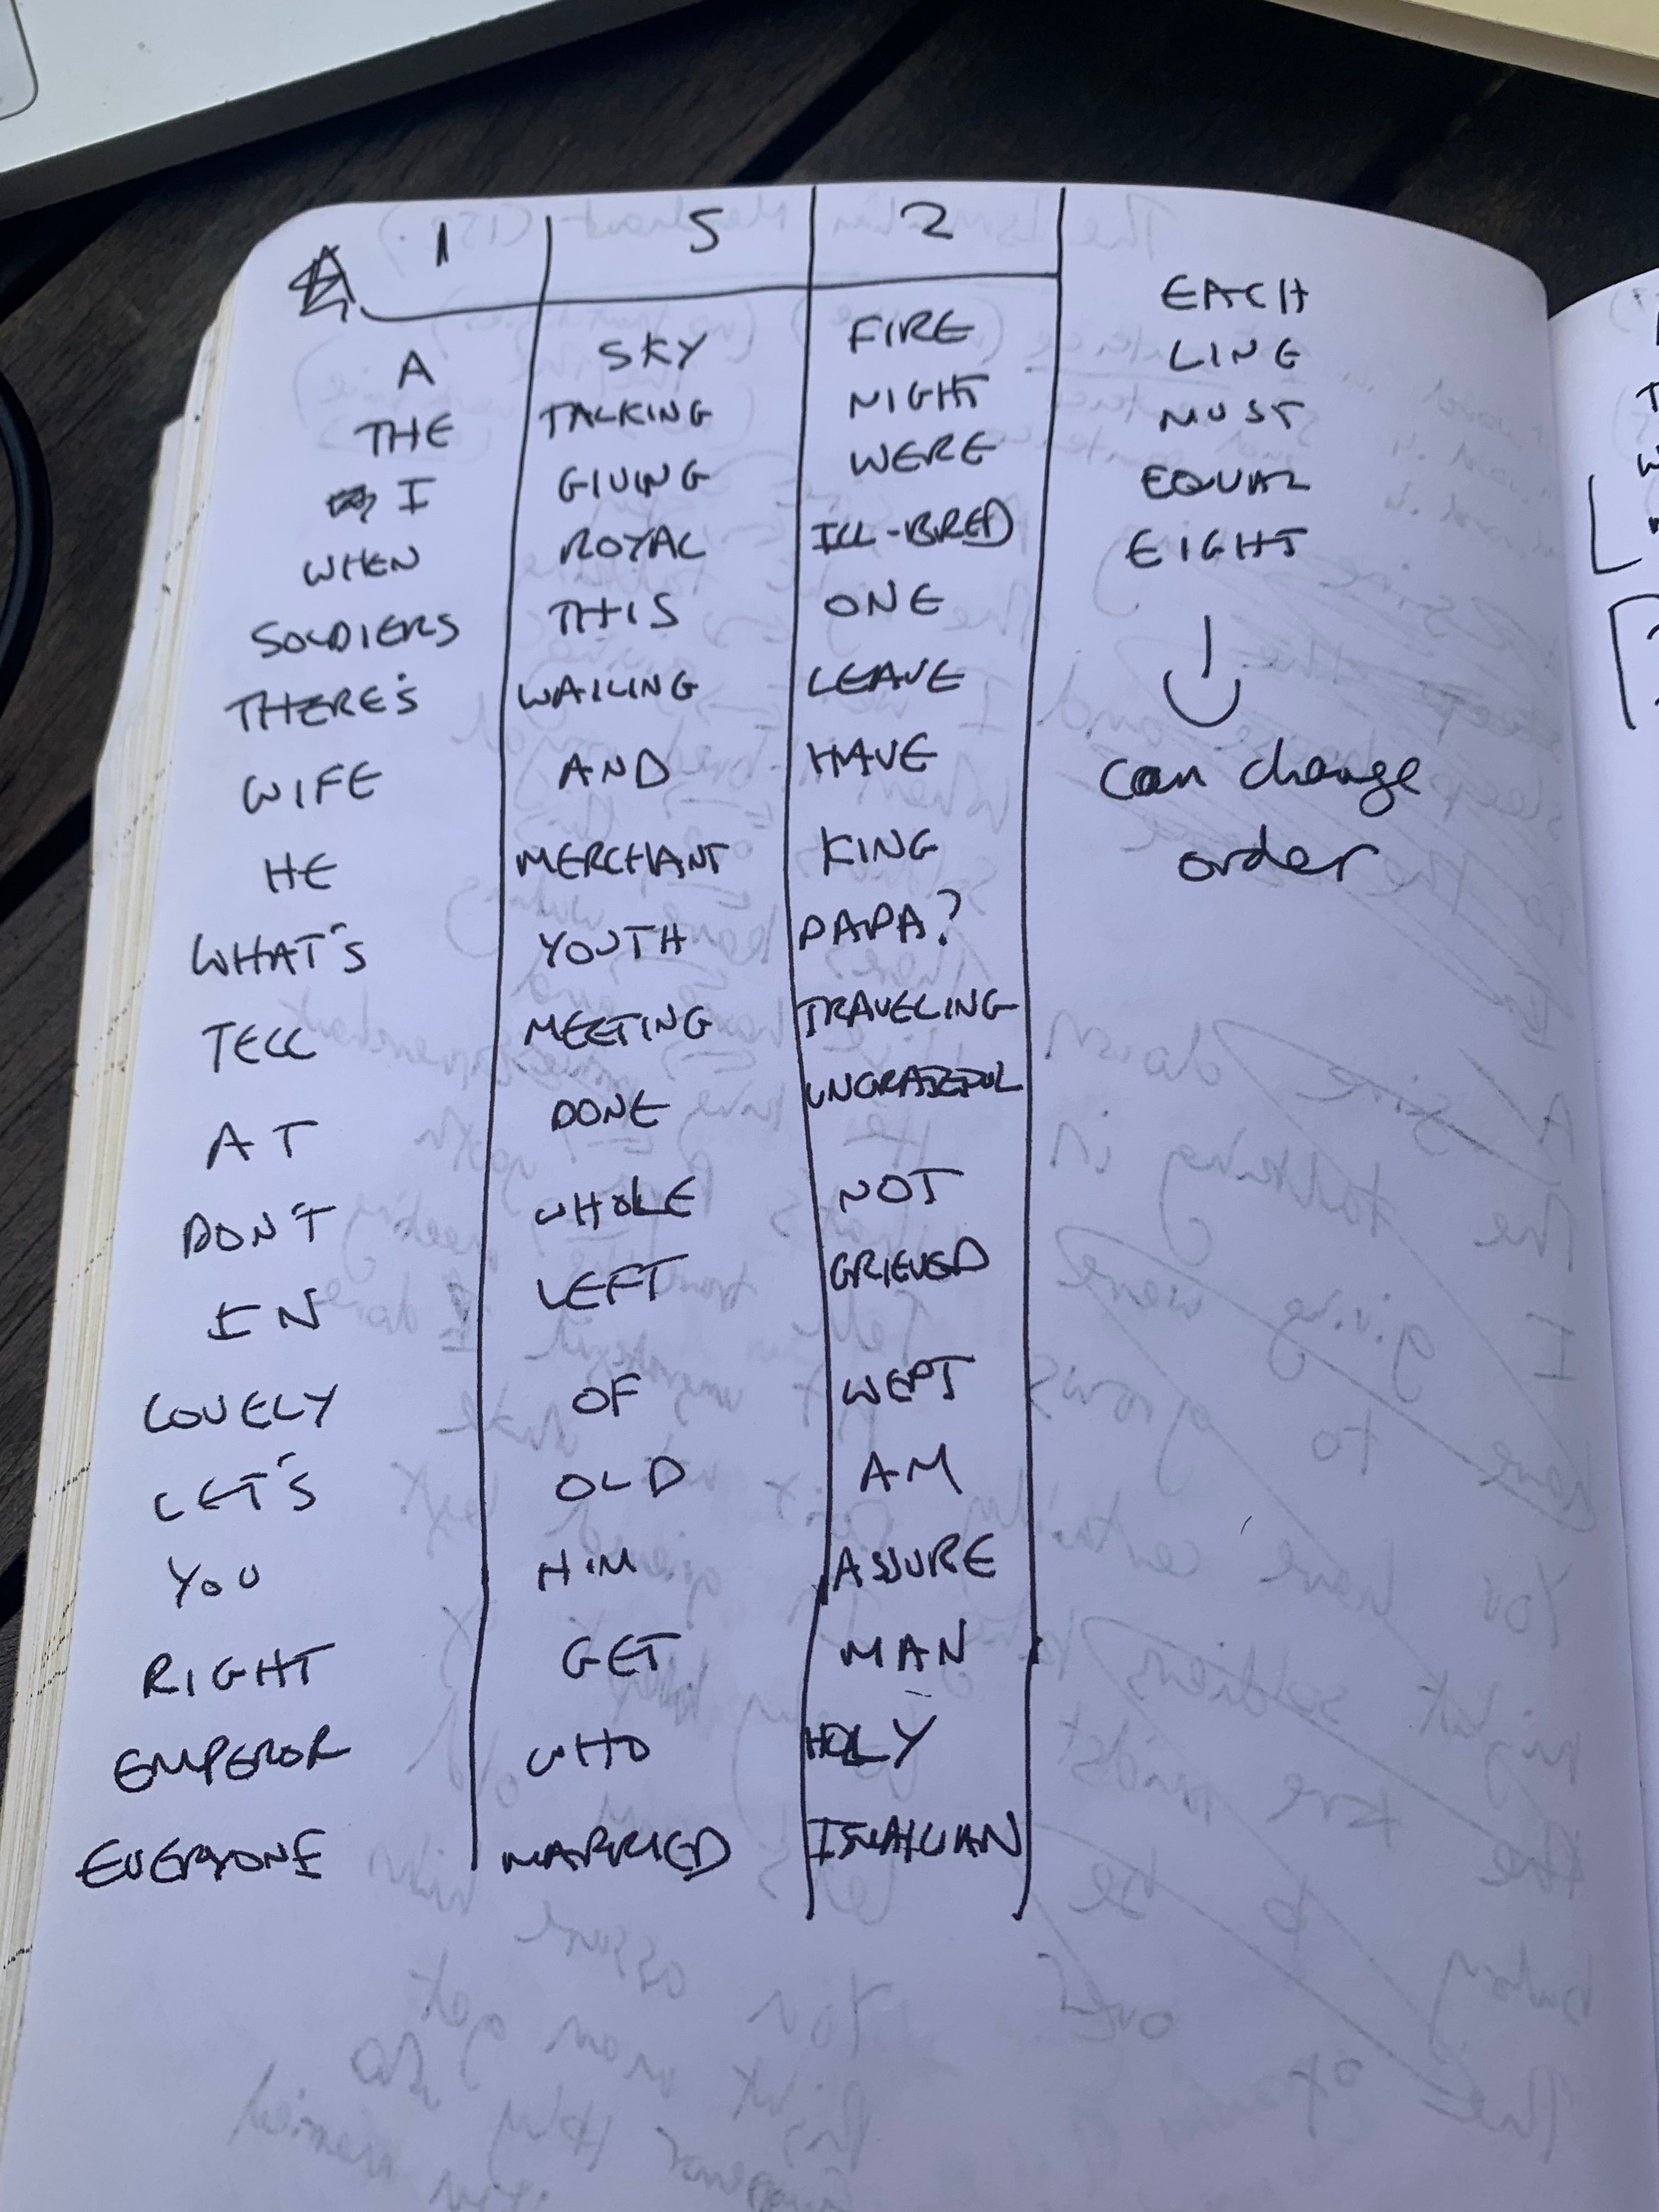 1 5 2
A SKY FIRE
THE TALKING NIGHT
I GIVING WERE
WHEN ROYAL ILL-BRED
SOLDIERS THIS ONE
THERE'S WAILING LEAVE
WIFE AND HAVE
HE MERCHANT KING
WHAT'S YOUTH PAPA?
TELL MEETING TRAVELING
AT DONE UNGRATEFUL
DON'T WHOLE NOT
IN LEFT GRIEVED
LOVELY OF WEPT
LET'S OLD AM
YOU HIM ASSURE
RIGHT GET MAN
EMPEROR WHO HOLY
EVERYONE MARRIED
EACH
LINE
MUST
EQUAL
EIGHT
can change
order